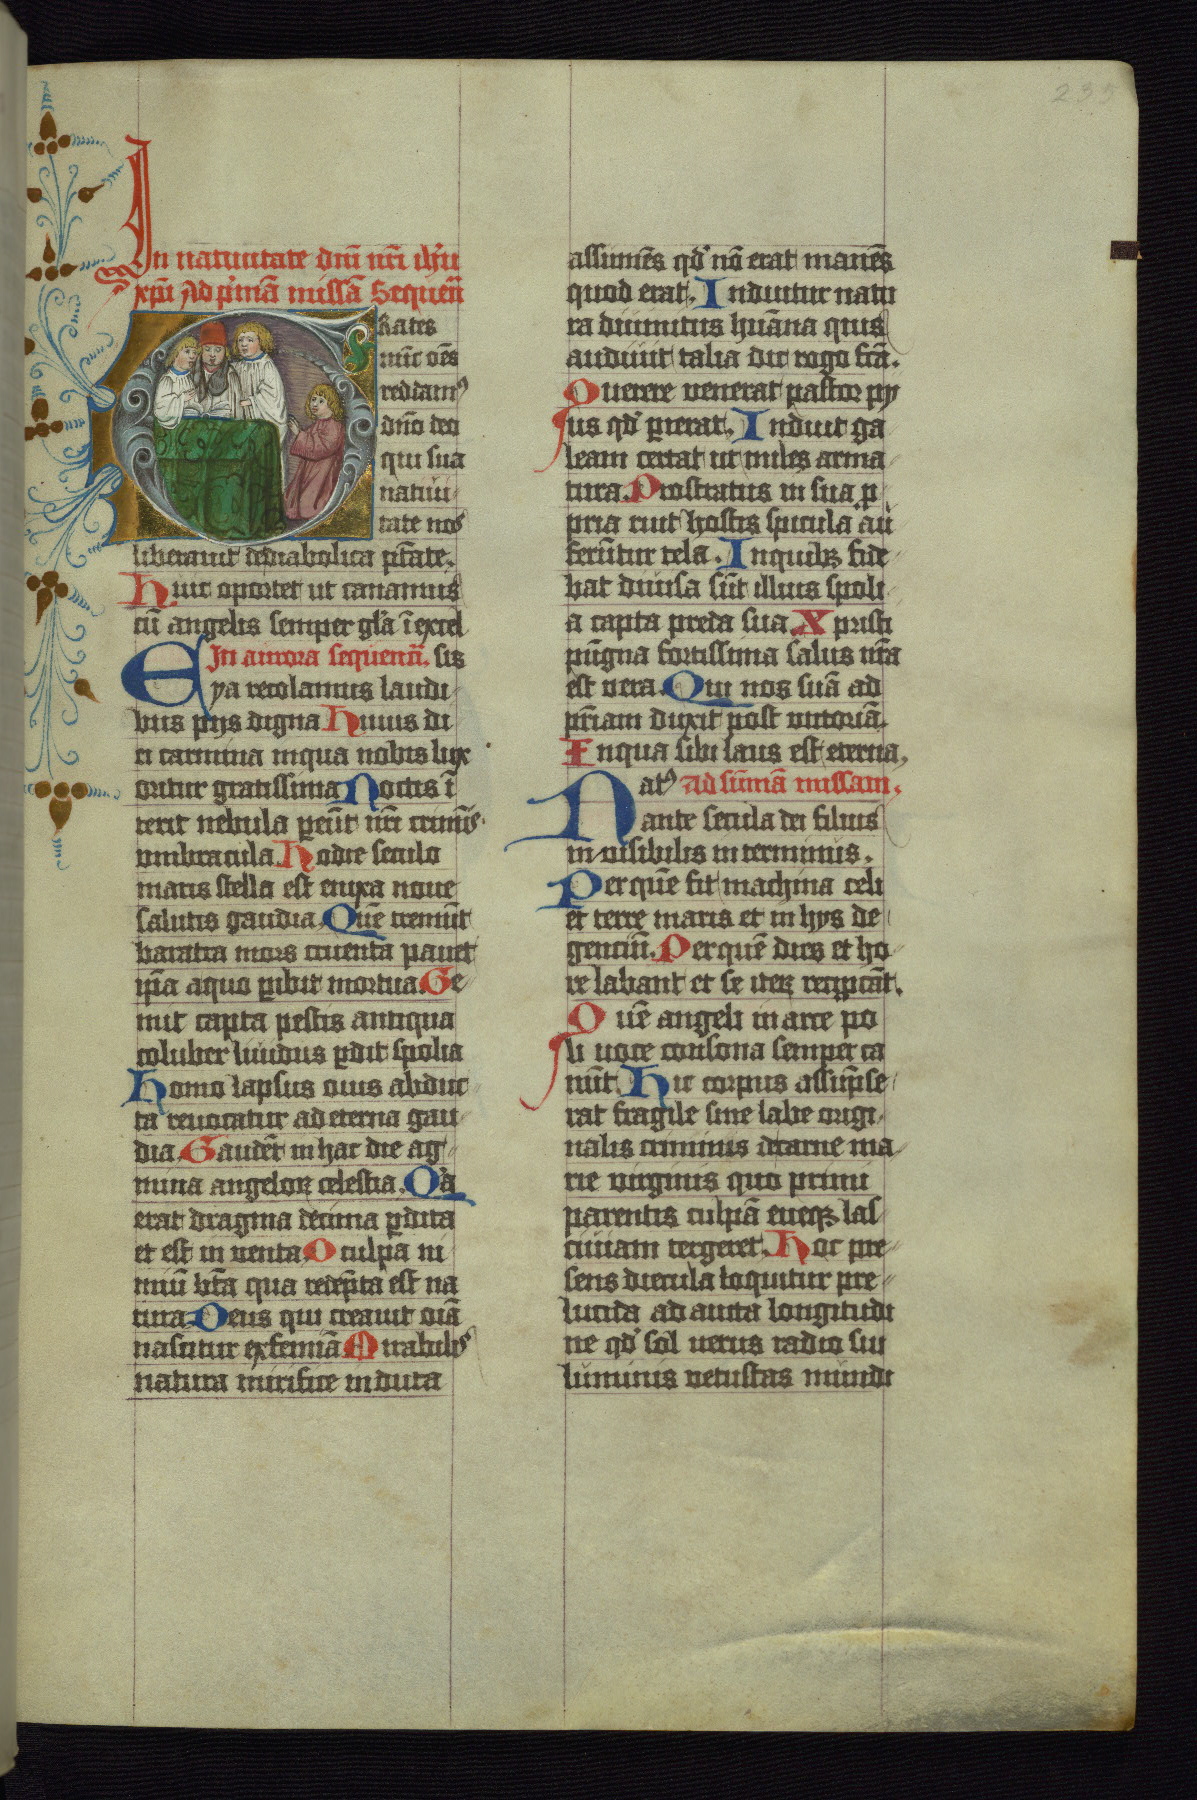 235
In natiuitate dnı̄ nr̄i ih'u
xp̄i Ad p'mā missā Sequen̄
GRates
nūc oēs
reddam9
dn̄o deo
qui sua
natiui
tate nos
liberauit dediabolica p̄tate.
Huic oportet ut canamus
cū angelis semper gl'a ī excel
In aurora sequenn̄. sis
Eya recolamus laudi
bus pijs digna Huius di
ei carmina inqua nobis lux
oritur gratissima Noctis ī
terit nebula peūt nr̄i crimīs
umbracula Hodie seculo
maris stella est enixa noue
salutis gaudia Quē tremūt
baratra mors cruenta pauet
ip̄a aquo pibit mortua. Ge
mit capta pestis antiqua
coluber liuidus pdit spolia
Homo lapsus ouis abduc
ta reuocatur ad eterna gau
dia. Gaudēt in hac die ag
mina angeloꝝ celestia. Q'a
erat dragma decima pdita
et est in uenta O culpa ni
miū bt̄a qua redēpta est na
tura Deus qui creauit oīa
nascitur ex femīa Mirabil'
natura mirifice induta
assumēs qd' nō erat manēs
quod erat. Induitur natu
ra diuinitus hūana quis
audiuit talia dic rogo fc̄a.
Querere uenerat pastor pij
us qd' pierat. Induit ga
leam certat ut miles arma
tura. Prostratus in sua p
pria ruit hostis spicula au
ferūtur tela. Inquibꝫ fide
bat diuisa sūt illius spoli
a capta preda sua. Xpristi
pūgna fortissima salus nr̄a
est uera. Qui nos suā ad
pr̄iam duxit post uictoriā.
Inqua sibi laus est eterna.
Nat9 Ad sūmā missam.
ante secula dei filius
in uisibilis in terminus.
Per quē fit machina celi
et terre maris et in hys de
genciū. Per quē dies et ho
re labant et se iteꝝ recipcāt.
Quē angeli in arce po
li uoce consona semper ca
nūt. Hic corpus assūpse
rat fragile sine labe origi
nalis criminis decarne ma
rie uirginis quo primi
parentis culpā eueqꝫ las
ciuiam tergeret. Hoc pre
sens diecula loquitur pre
lucida ad aucta longitudi
ne qd' sol uerus radio sui
luminis uetustas mundi